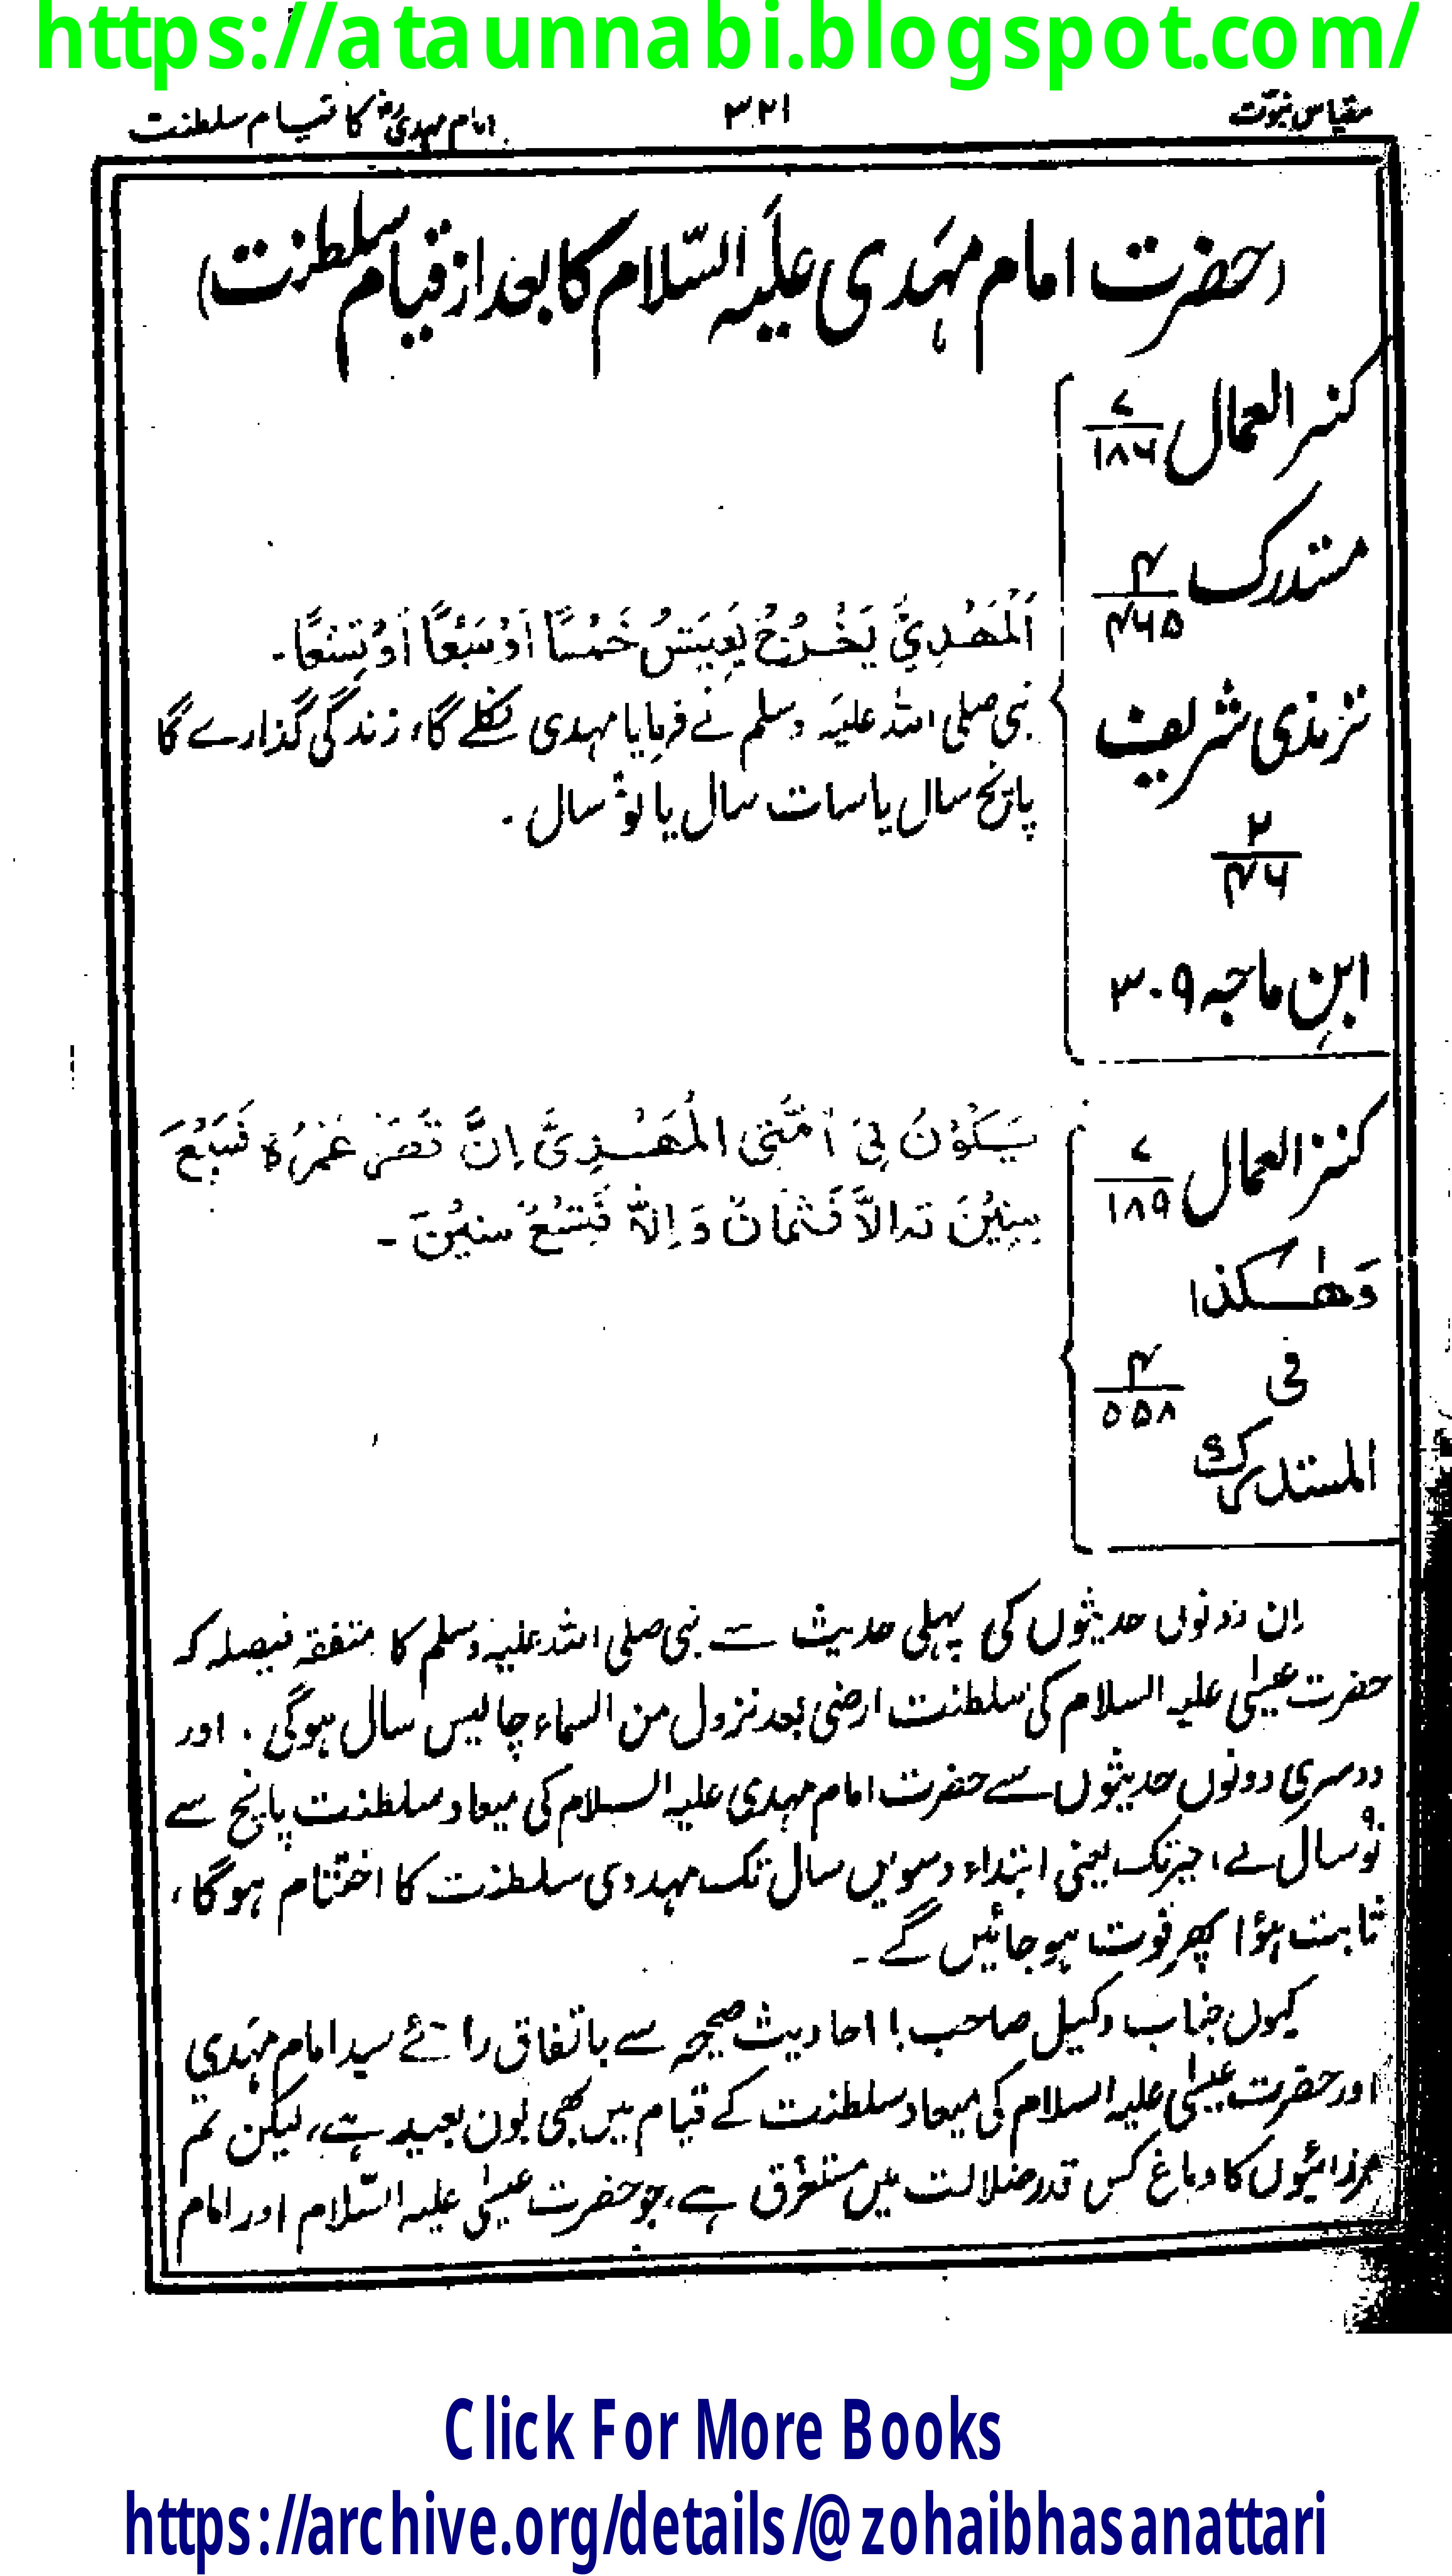 https://ataunnabi.blogspot.com/
مقیاس نبوّت ۳۲۱ امام مہدیؓ کا قیام سلطنت
(حضرت امام مہدی علیہ السّلام کا بعد از قیام سلطنت)
کنز العمال ۷/۱۸۶
مستدرک ۴/۴۶۵
ترمذی شریف
۲/۴۶
ابنِ ماجہ ۳۰۹
اَلْمَهْدِيُّ يَخْرُجُ يَعِيشُ خَمْسًا اَوْ سَبْعًا اَوْ تِسْعًا۔
نبی صلی اللہ علیہ وسلم نے فرمایا مہدی نکلے گا، زندگی گذارے گا
پانچ سال یا سات سال یا نو سال ۔
کنز العمال ۷/۱۸۹
وَهٰكذا
فی ۴/۵۵۸
المستدرک
يَكُوْنُ فِي اُمَّتِي الْمَهْدِيُّ اِنَّ قَصَرَ عُمْرُهٗ فَسَبْعَ
سِنِيْنَ وَ اِلَّا فَثَمَانٌ وَ اِلَّا فَتِسْعُ سِنِيْنَ ۔
اِن دونوں حدیثوں کی پہلی حدیث سے نبی صلی اللہ علیہ وسلم کا متفقہ فیصلہ کہ
حضرت عیسٰی علیہ السلام کی سلطنت ارضی بعد نزول من السماء چالیس سال ہوگی ۔ اور
دوسری دونوں حدیثوں سے حضرت امام مہدی علیہ السلام کی میعاد سلطنت پانچ سے
نو سال ہے، یعنی ابتداء دسویں سال تک مہدوی سلطنت کا اختتام ہو گا،
ثابت ہؤا پھر فوت ہو جائیں گے ۔
کیوں جناب وکیل صاحب! احادیث صحیحہ سے باتفاق رائے سید امام مہدی
اور حضرت عیسٰی علیہ السلام کی میعاد سلطنت کے قیام میں بھی بون بعید ہے، لیکن تم
مرزائیوں کا دماغ کس قدر ضلالت میں مستغرق ہے، جو حضرت عیسٰی علیہ السّلام اور امام
Click For More Books
https://archive.org/details/@zohaibhasanattari